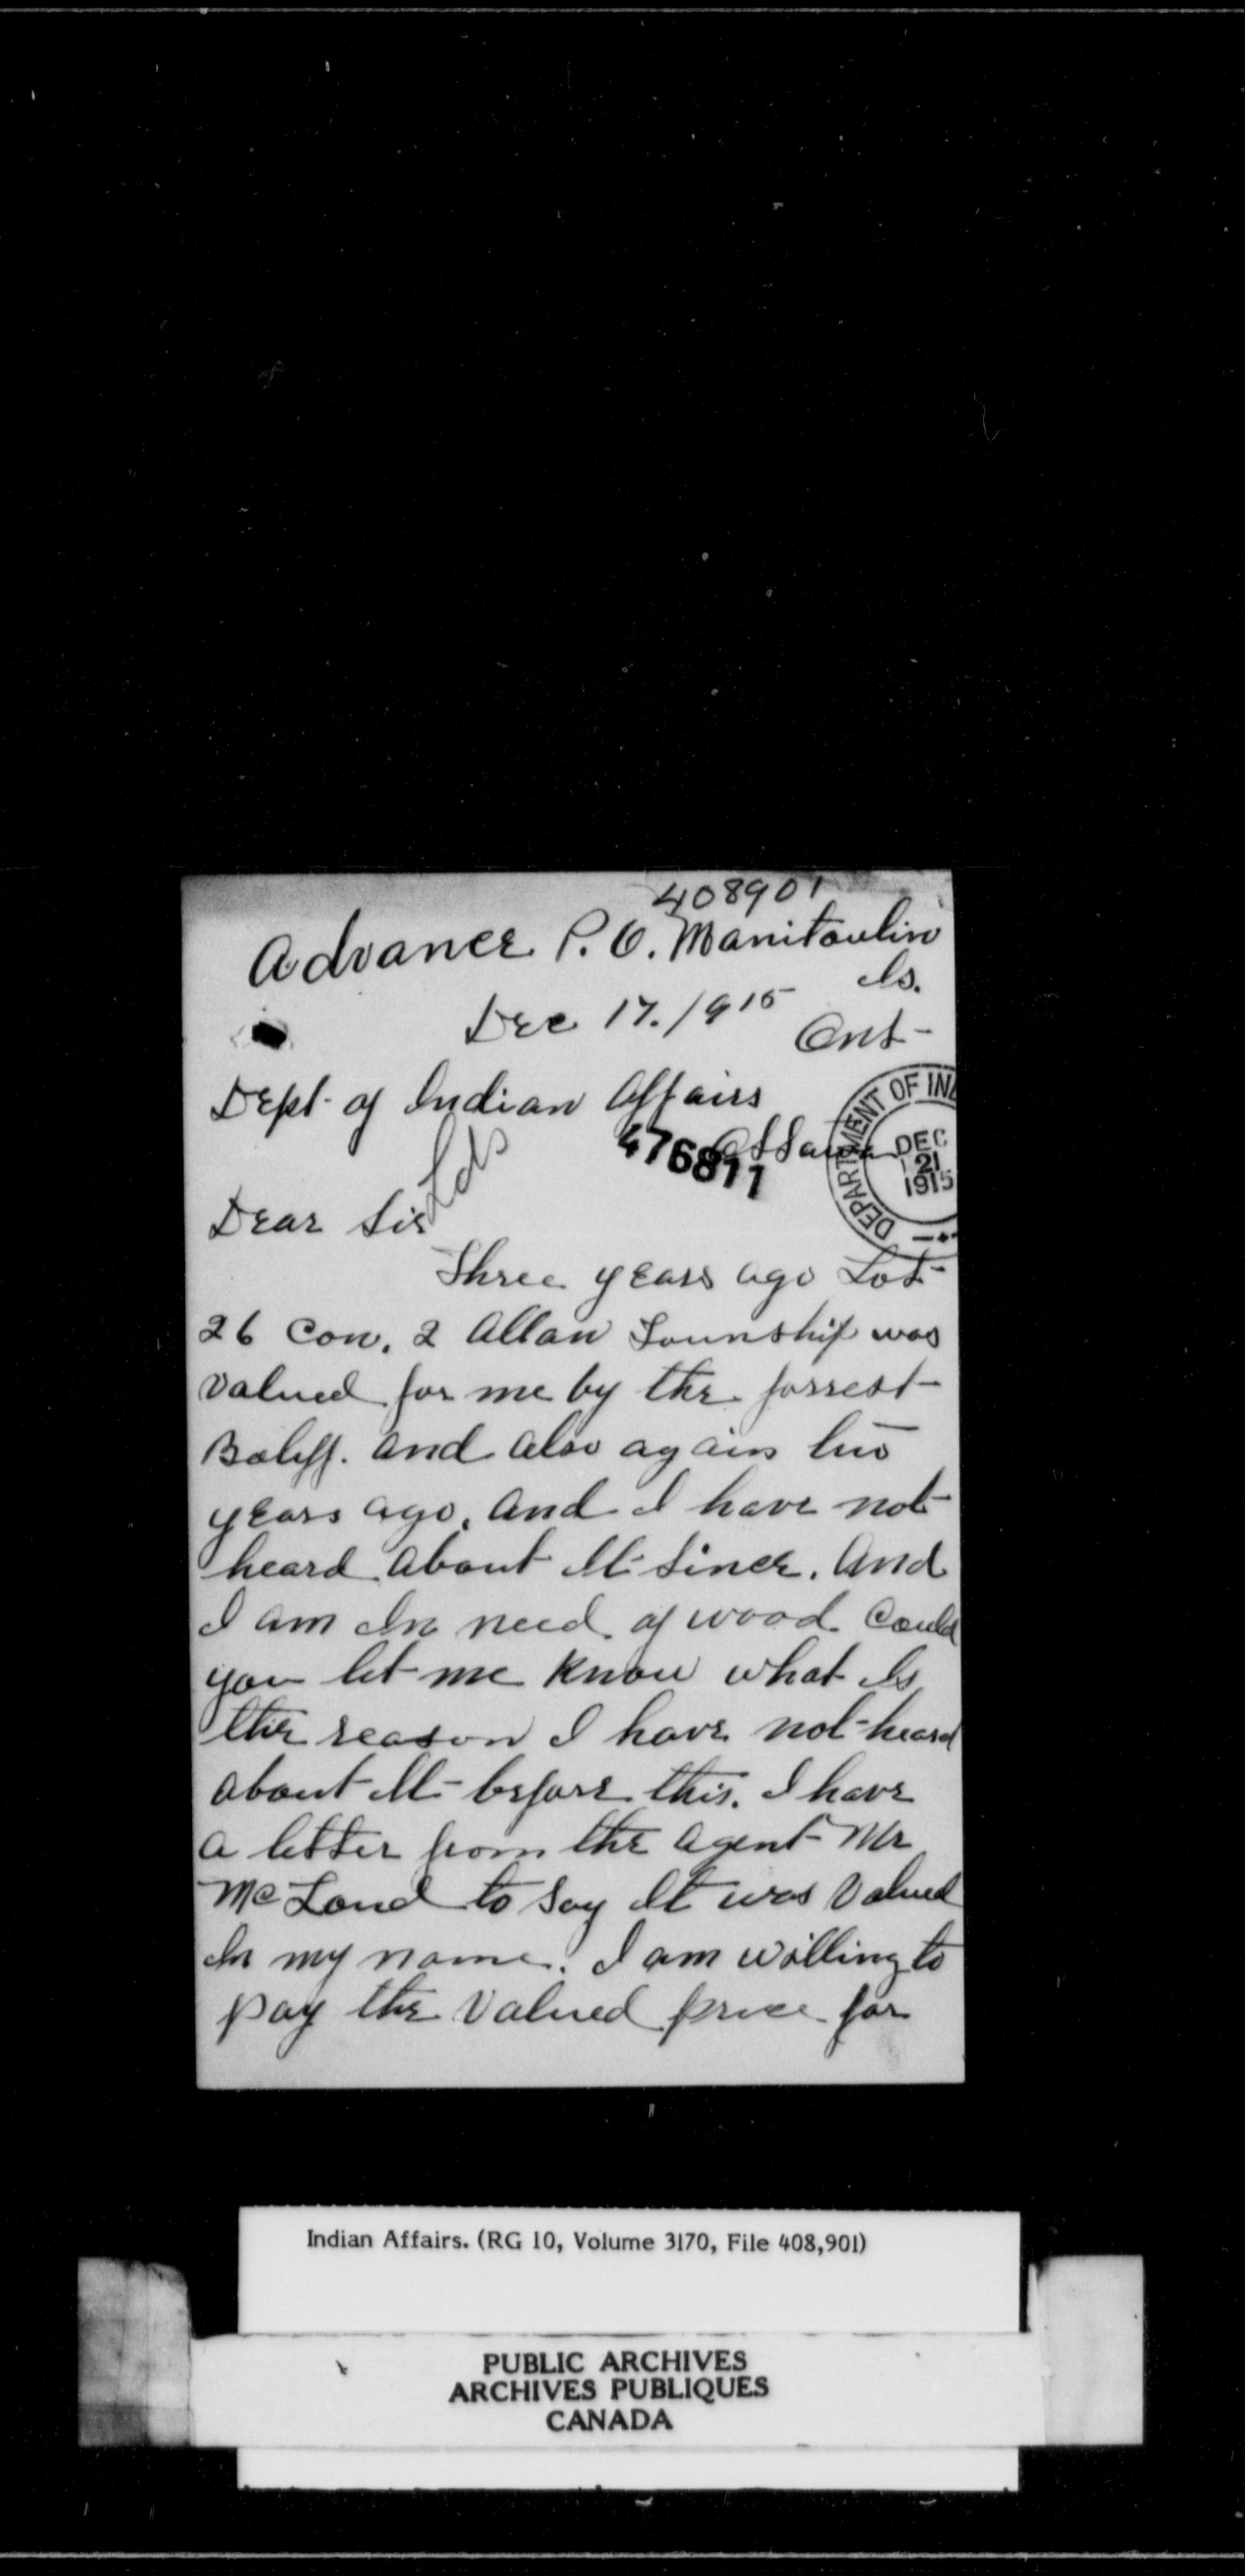 408901
Advance P.O. Manitoulin
Is.
Dec 17. 1915
Ont-
Dept- of Indian Affairs
Ottawa
476811
DEPARTMENT OF IN
DEC
21
1915
Lds
Dear Sir
Three years ago Lot-
26 Con. 2 Allan Township was
Valued for me by the forrest-
Baliff. and also again two
years ago, and I have not-
heard about It- Since. And
I am In need of wood Could
you let me know what Is
the reason I have not-heard
about It- before this. I have
a letter from the agent- Mr
McLoud to Say It was Valued
In my name. I am willing to
pay the Valued price for
Indian Affairs. (RG 10, Volume 3170, File 408,901)
PUBLIC ARCHIVES
ARCHIVES PUBLIQUES
CANADA